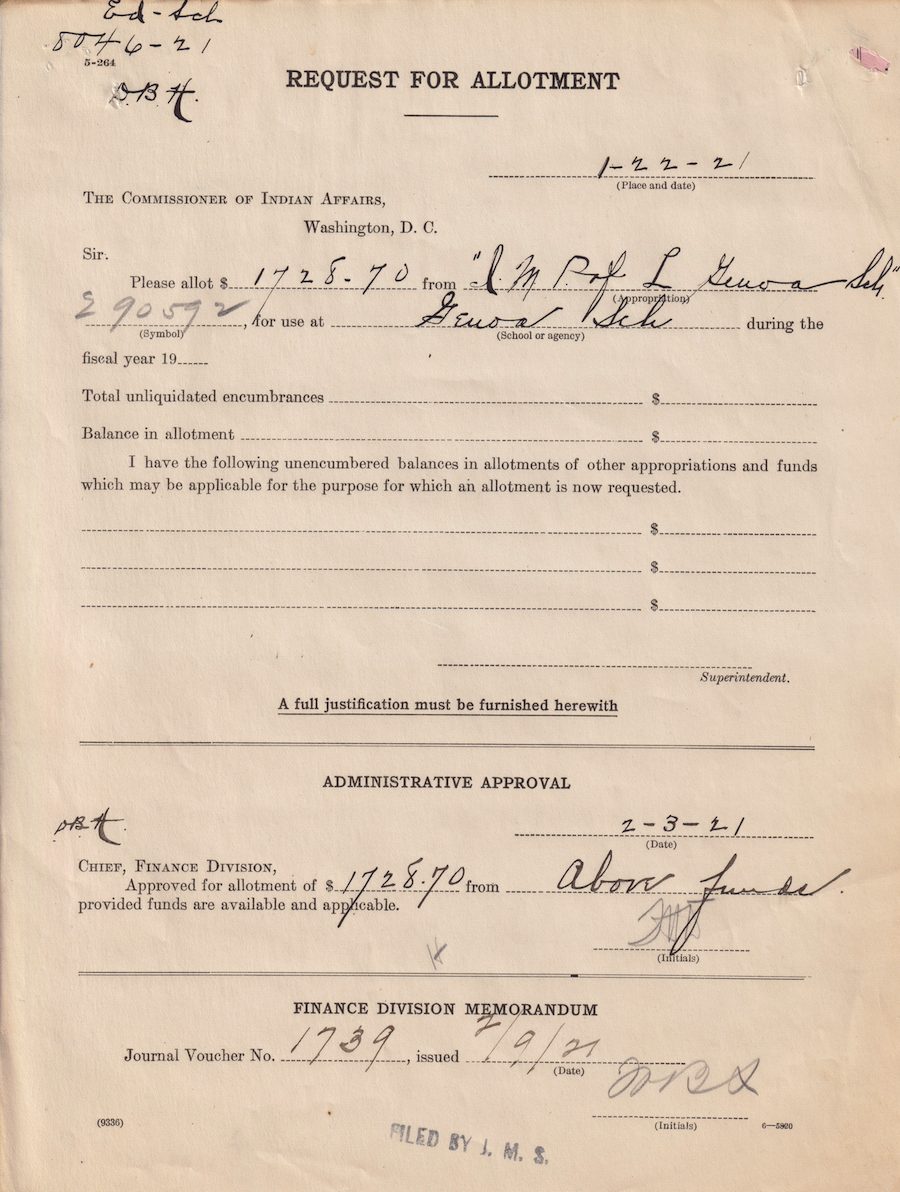 Ed-Sch
8046-21
5-264
D.B.H.
REQUEST FOR ALLOTMENT
1-22-21
(Place and date)
THE COMMISSIONER OF INDIAN AFFAIRS,
Washington, D. C.
Sir.
Please allot $ 1728.70 from "I. M. P. of L Genoa Sch."
(Appropriation)
290592, for use at Genoa Sch during the
(Symbol) (School or agency)
fiscal year 19
Total unliquidated encumbrances $
Balance in allotment $
I have the following unencumbered balances in allotments of other appropriations and funds
which may be applicable for the purpose for which an allotment is now requested.
$
$
$
Superintendent.
A full justification must be furnished herewith
ADMINISTRATIVE APPROVAL
DBH.
2-3-21
(Date)
CHIEF, FINANCE DIVISION,
Approved for allotment of $ 1728.70 from Above funds.
provided funds are available and applicable.
(Initials)
FINANCE DIVISION MEMORANDUM
Journal Voucher No. 1739, issued 2/9/21
(Date)
(Initials)
(9336)
6-5920
FILED BY J. M. S.